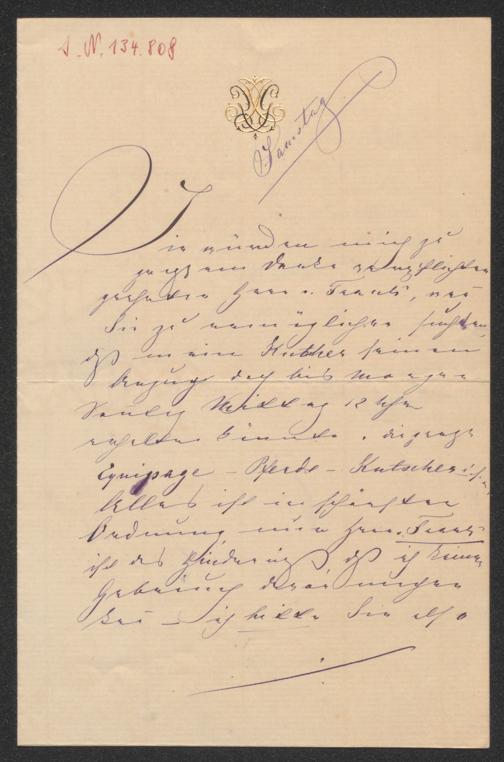 I. N. 134.808
Samstag
Sie würden mich zu
grossem Danke verpflichten
geehrter Herr v. Frank, wenn
Sie zu ermöglichen suchten,
daß mein Kutscher seinen
Anzug doch bis morgen
Sontag Mittag 12 Uhr
erhalten könnte. die ganze
Equipage – Pferde – Kutscher
Alles ist in schönster
Ordnung nur Herr v. Frank
ist das Hinderniß, daß ich keinen
Gebrauch davon machen
kan – ich bitte Sie also